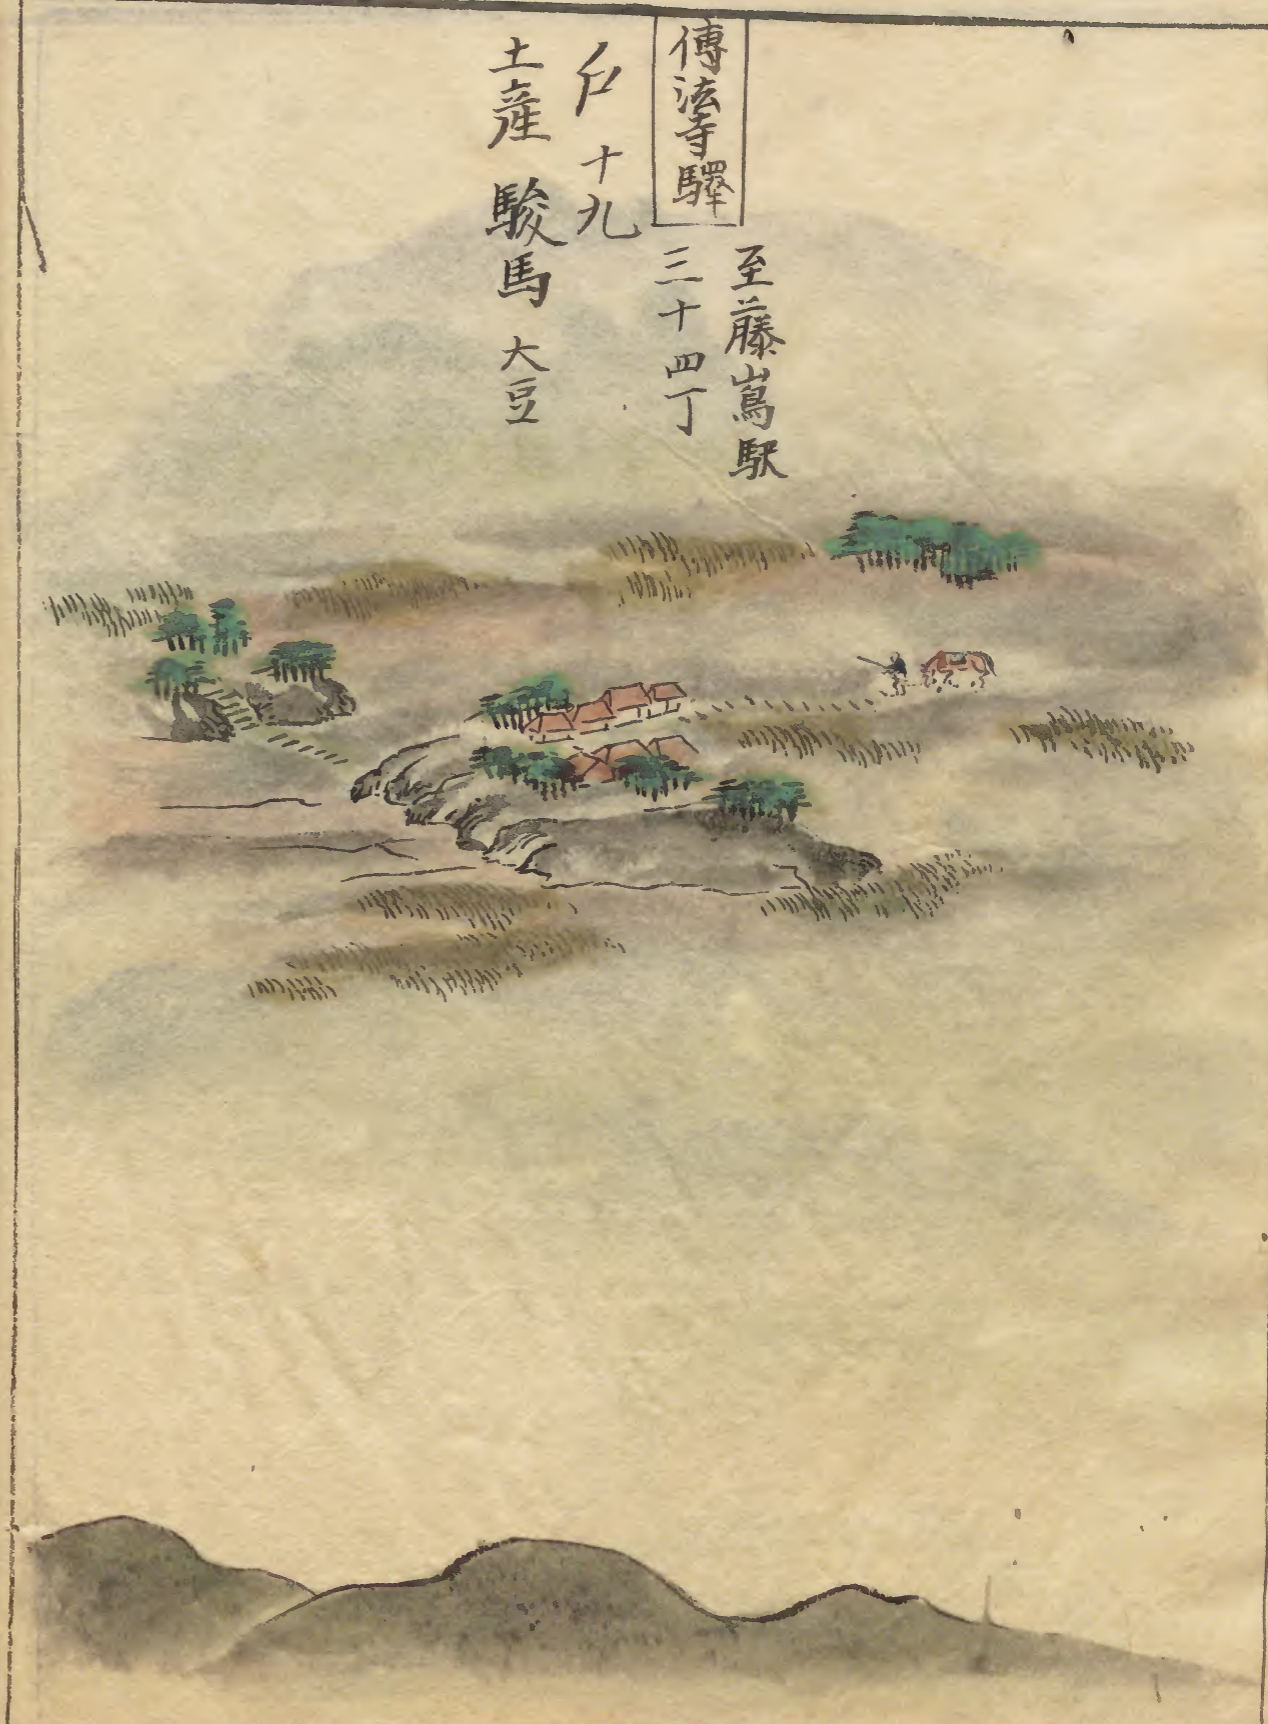 傳法寺驛
至藤嶌駅
三十四丁
戶 十九
土産 駿馬 大豆